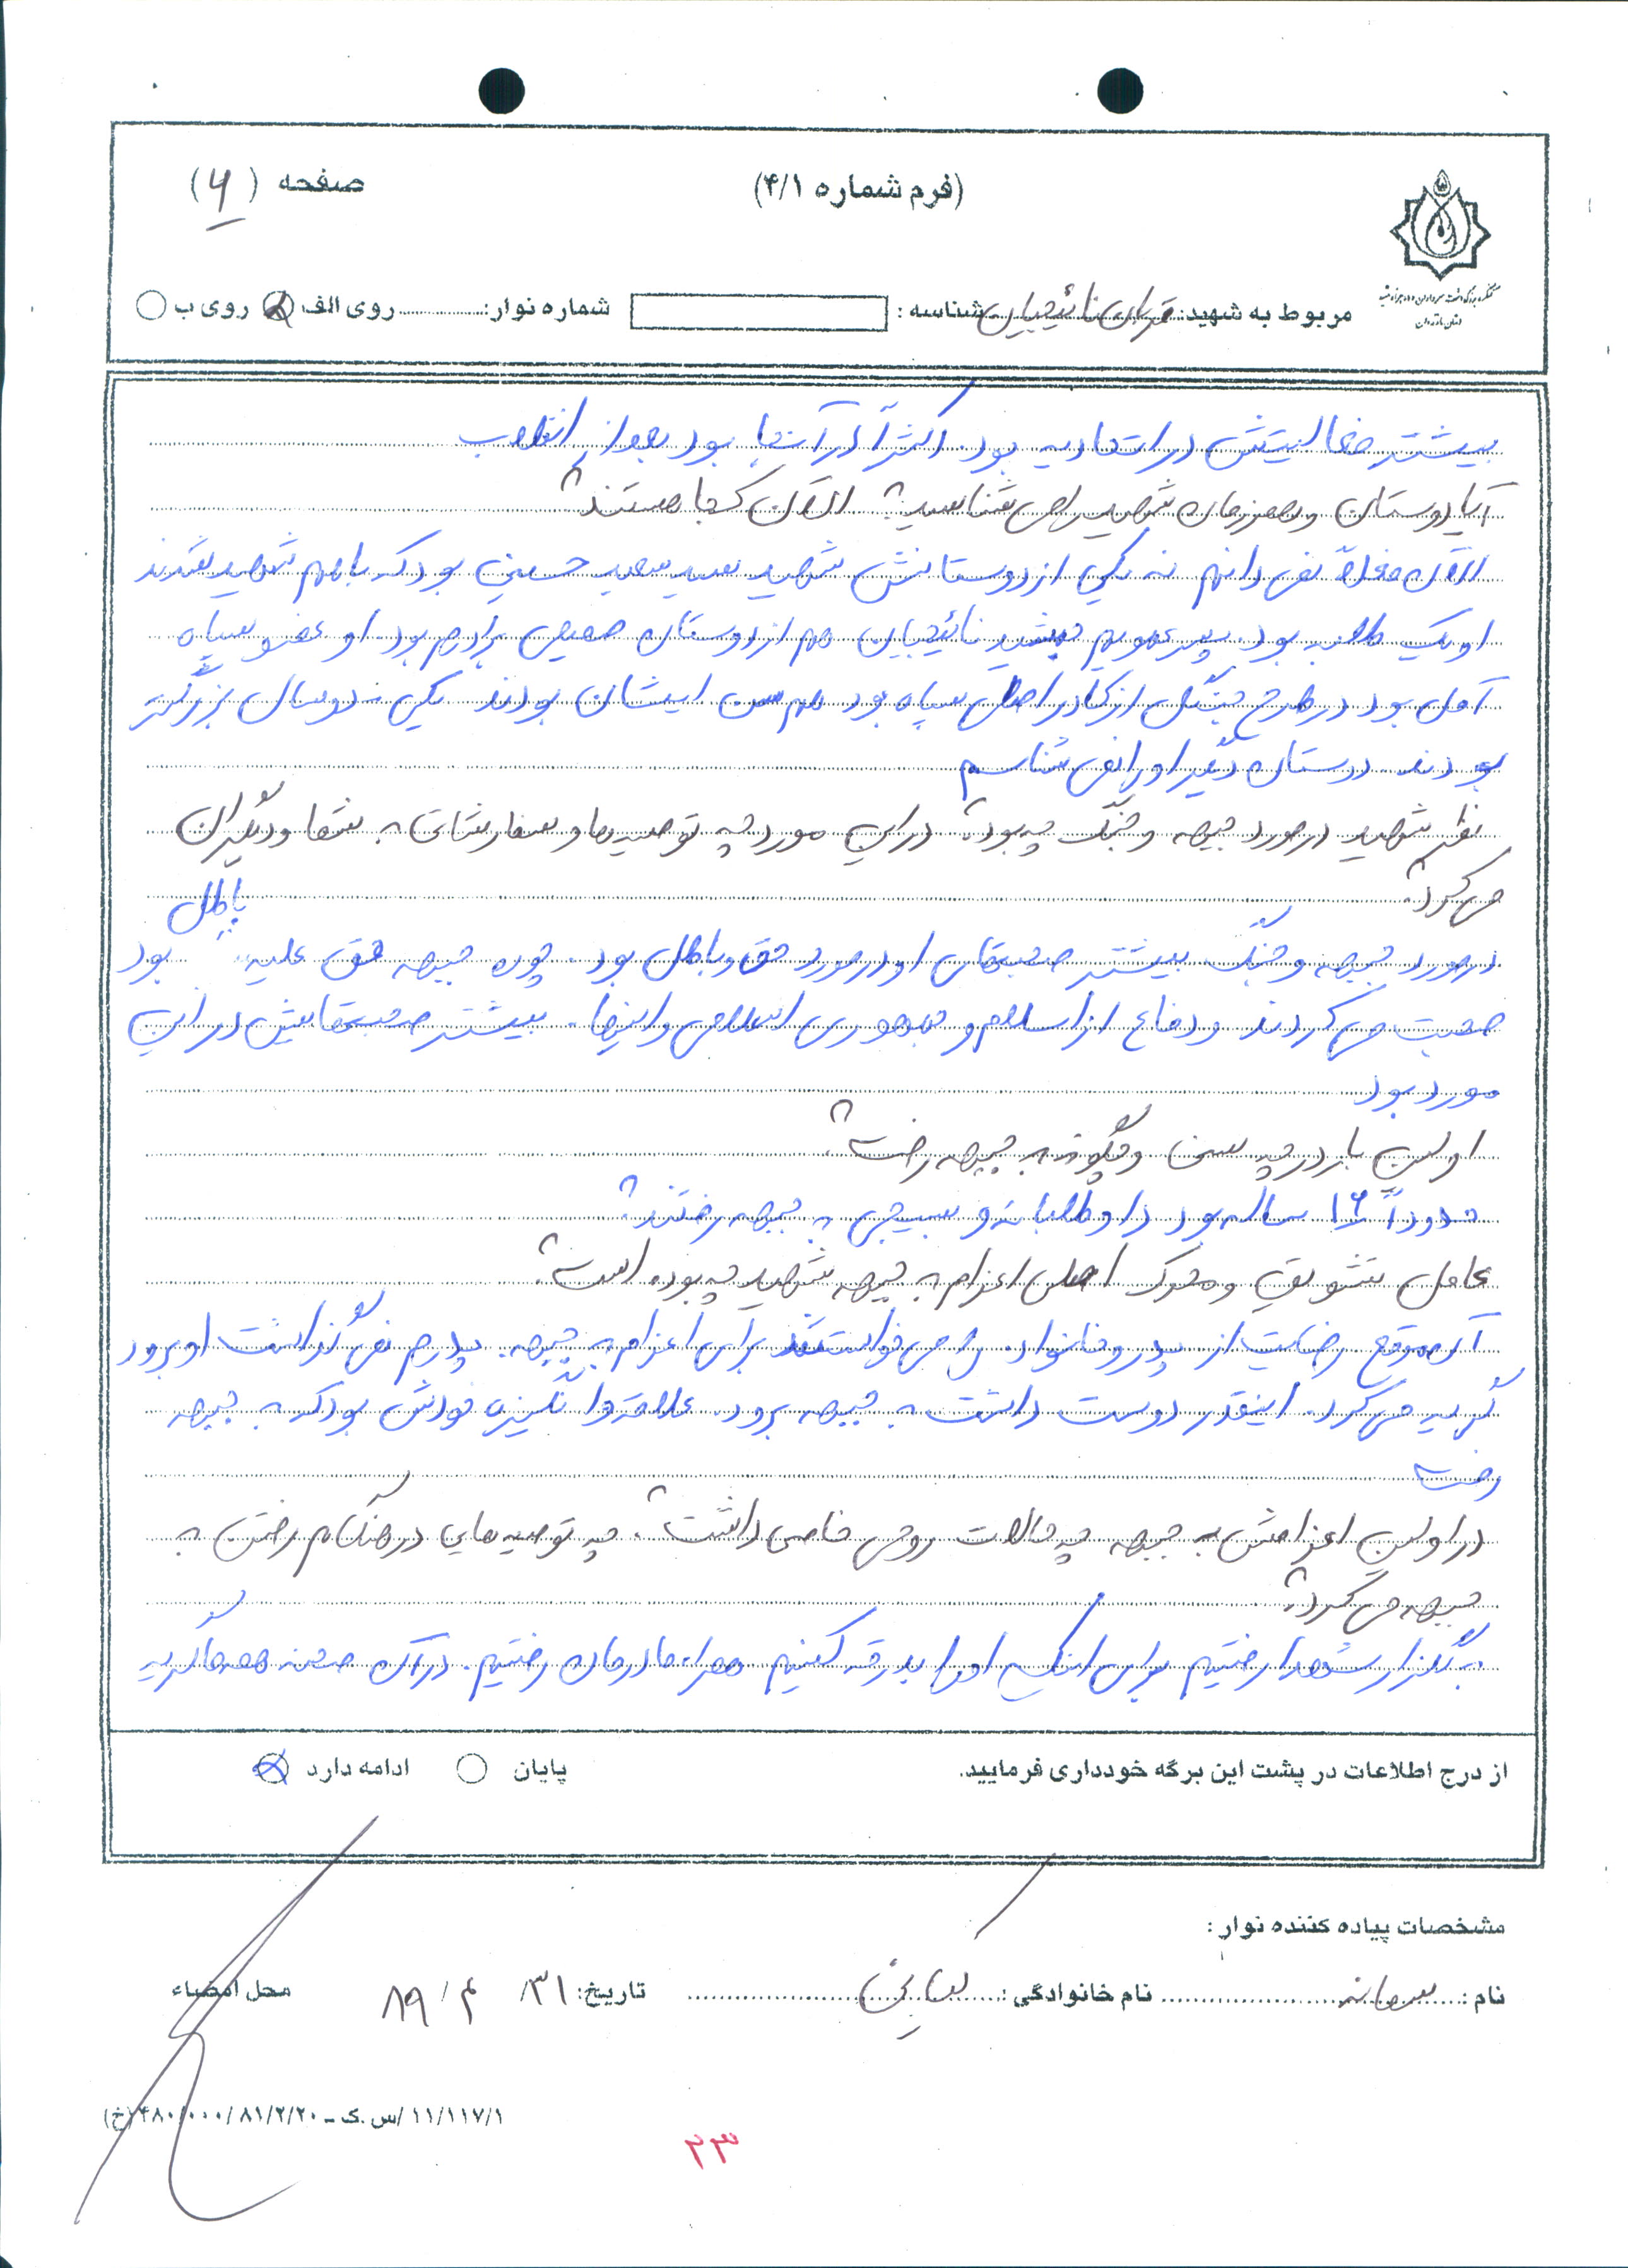 (فرم شماره ۴/۱)
صفحه (۶)
کنگره بزرگداشت سرداران و ده هزار شهید
استان مازندران
مربوط به شهید: قربان نائیجیان شناسه: شماره نوار: روی الف روی ب
بیشتر فعالیتش در اتحادیه بود. اکثراً در آنجا بود بعد از انقلاب
آیا دوستان و همرزمان شهید را می شناسید؟ الآن کجا هستند؟
الآن فعلاً نمی دانم نه یکی از دوستانش شهید سید سعید حسینی بود که با هم شهید شدند
او یک طلبه بود. پسر عمویم نائیجیان هم از دوستان صمیمی برادرم بود. او عضو سپاه
آمل بود در طرح جنگل از کادر اصلی سپاه بود هم سن ایشان بودند یکی دو سال بزرگتر
بودند دوستان دیگر او را نمی شناسم
نظر شهید در مورد جبهه و جنگ چه بود؟ در این مورد چه توصیه ها و سفارشاتی به شما و دیگران
می کرد؟
در مورد جبهه و جنگ بیشتر صحبتهای او در مورد حق و باطل بود. چون جبهه حق علیه باطل بود
صحبت می کردند و دفاع از اسلام و جمهوری اسلامی و اینها. بیشتر صحبتهایش در این
مورد بود
اولین بار در چه سنی و چگونه به جبهه رفت؟
حدوداً ۱۶ ساله بود داوطلبانه و بسیجی به جبهه رفتند؟
عامل تشویق و محرک اصلی اعزام به جبهه شهید چه بوده است؟
آن موقع رضایت از پدر و خانواده را می خواستند برای اعزام به جبهه. پدرم نمی گذاشت او برود
گریه می کرد. اینقدر دوست داشت به جبهه برود. علاقه و انگیزه خودش بود که به جبهه
رفت
در اولین اعزامش به جبهه چه حالات روحی خاصی داشت؟ چه توصیه هایی در هنگام رفتن به
جبهه می کرد؟
به گلزار شهدا رفتیم برای اینکه او را بدرقه کنیم همراه مادرمان رفتیم. در آن صحنه همه ما گریه
از درج اطلاعات در پشت این برگه خودداری فرمایید.
پایان ادامه دارد
مشخصات پیاده کننده نوار:
نام: سمانه نام خانوادگی: تاریخ: ۳۱/ ۴/ ۸۹ محل امضاء
۱۱/۱۱۷/۱ /س.ک - ۸۱/۲/۲۰ /۴۸۰/۰۰۰ (خ)
۲۳